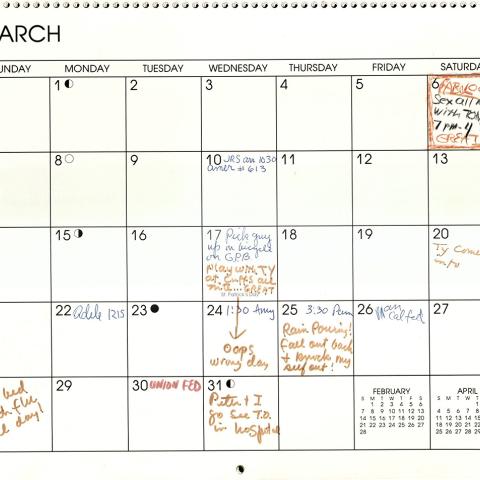 ARCH
UNDAY MONDAY TUESDAY WEDNESDAY THURSDAY FRIDAY SATURDA
1 2 3 4 5 6
Sex all
with
7 pm -
GREAT
8 9 10 JRS am 1030 11 12 13
# 613
15 16 17 Pick guy 18 19 20
up on bicycle
on GPB
Play with TY
at Cuffs all
nite... GREAT
St. Patrick's Day
Ty Come
22 Adele 1215 23 24 1:30 Amy 25 3:30 26 27
Oops
wrong day
Rain Pouring!
Fall out back
+ knock my
self out!
bed
flu
day!
29 30 UNION FED 31
Peter + I
go see T.O.
in hospital
FEBRUARY
S M T W T F S
1 2 3 4 5 6
7 8 9 10 11 12 13
14 15 16 17 18 19 20
21 22 23 24 25 26 27
28
APRIL
S M T W
1
4 5 6 7 8
11 12 13 14 15
18 19 20 21 22
25 26 27 28 29